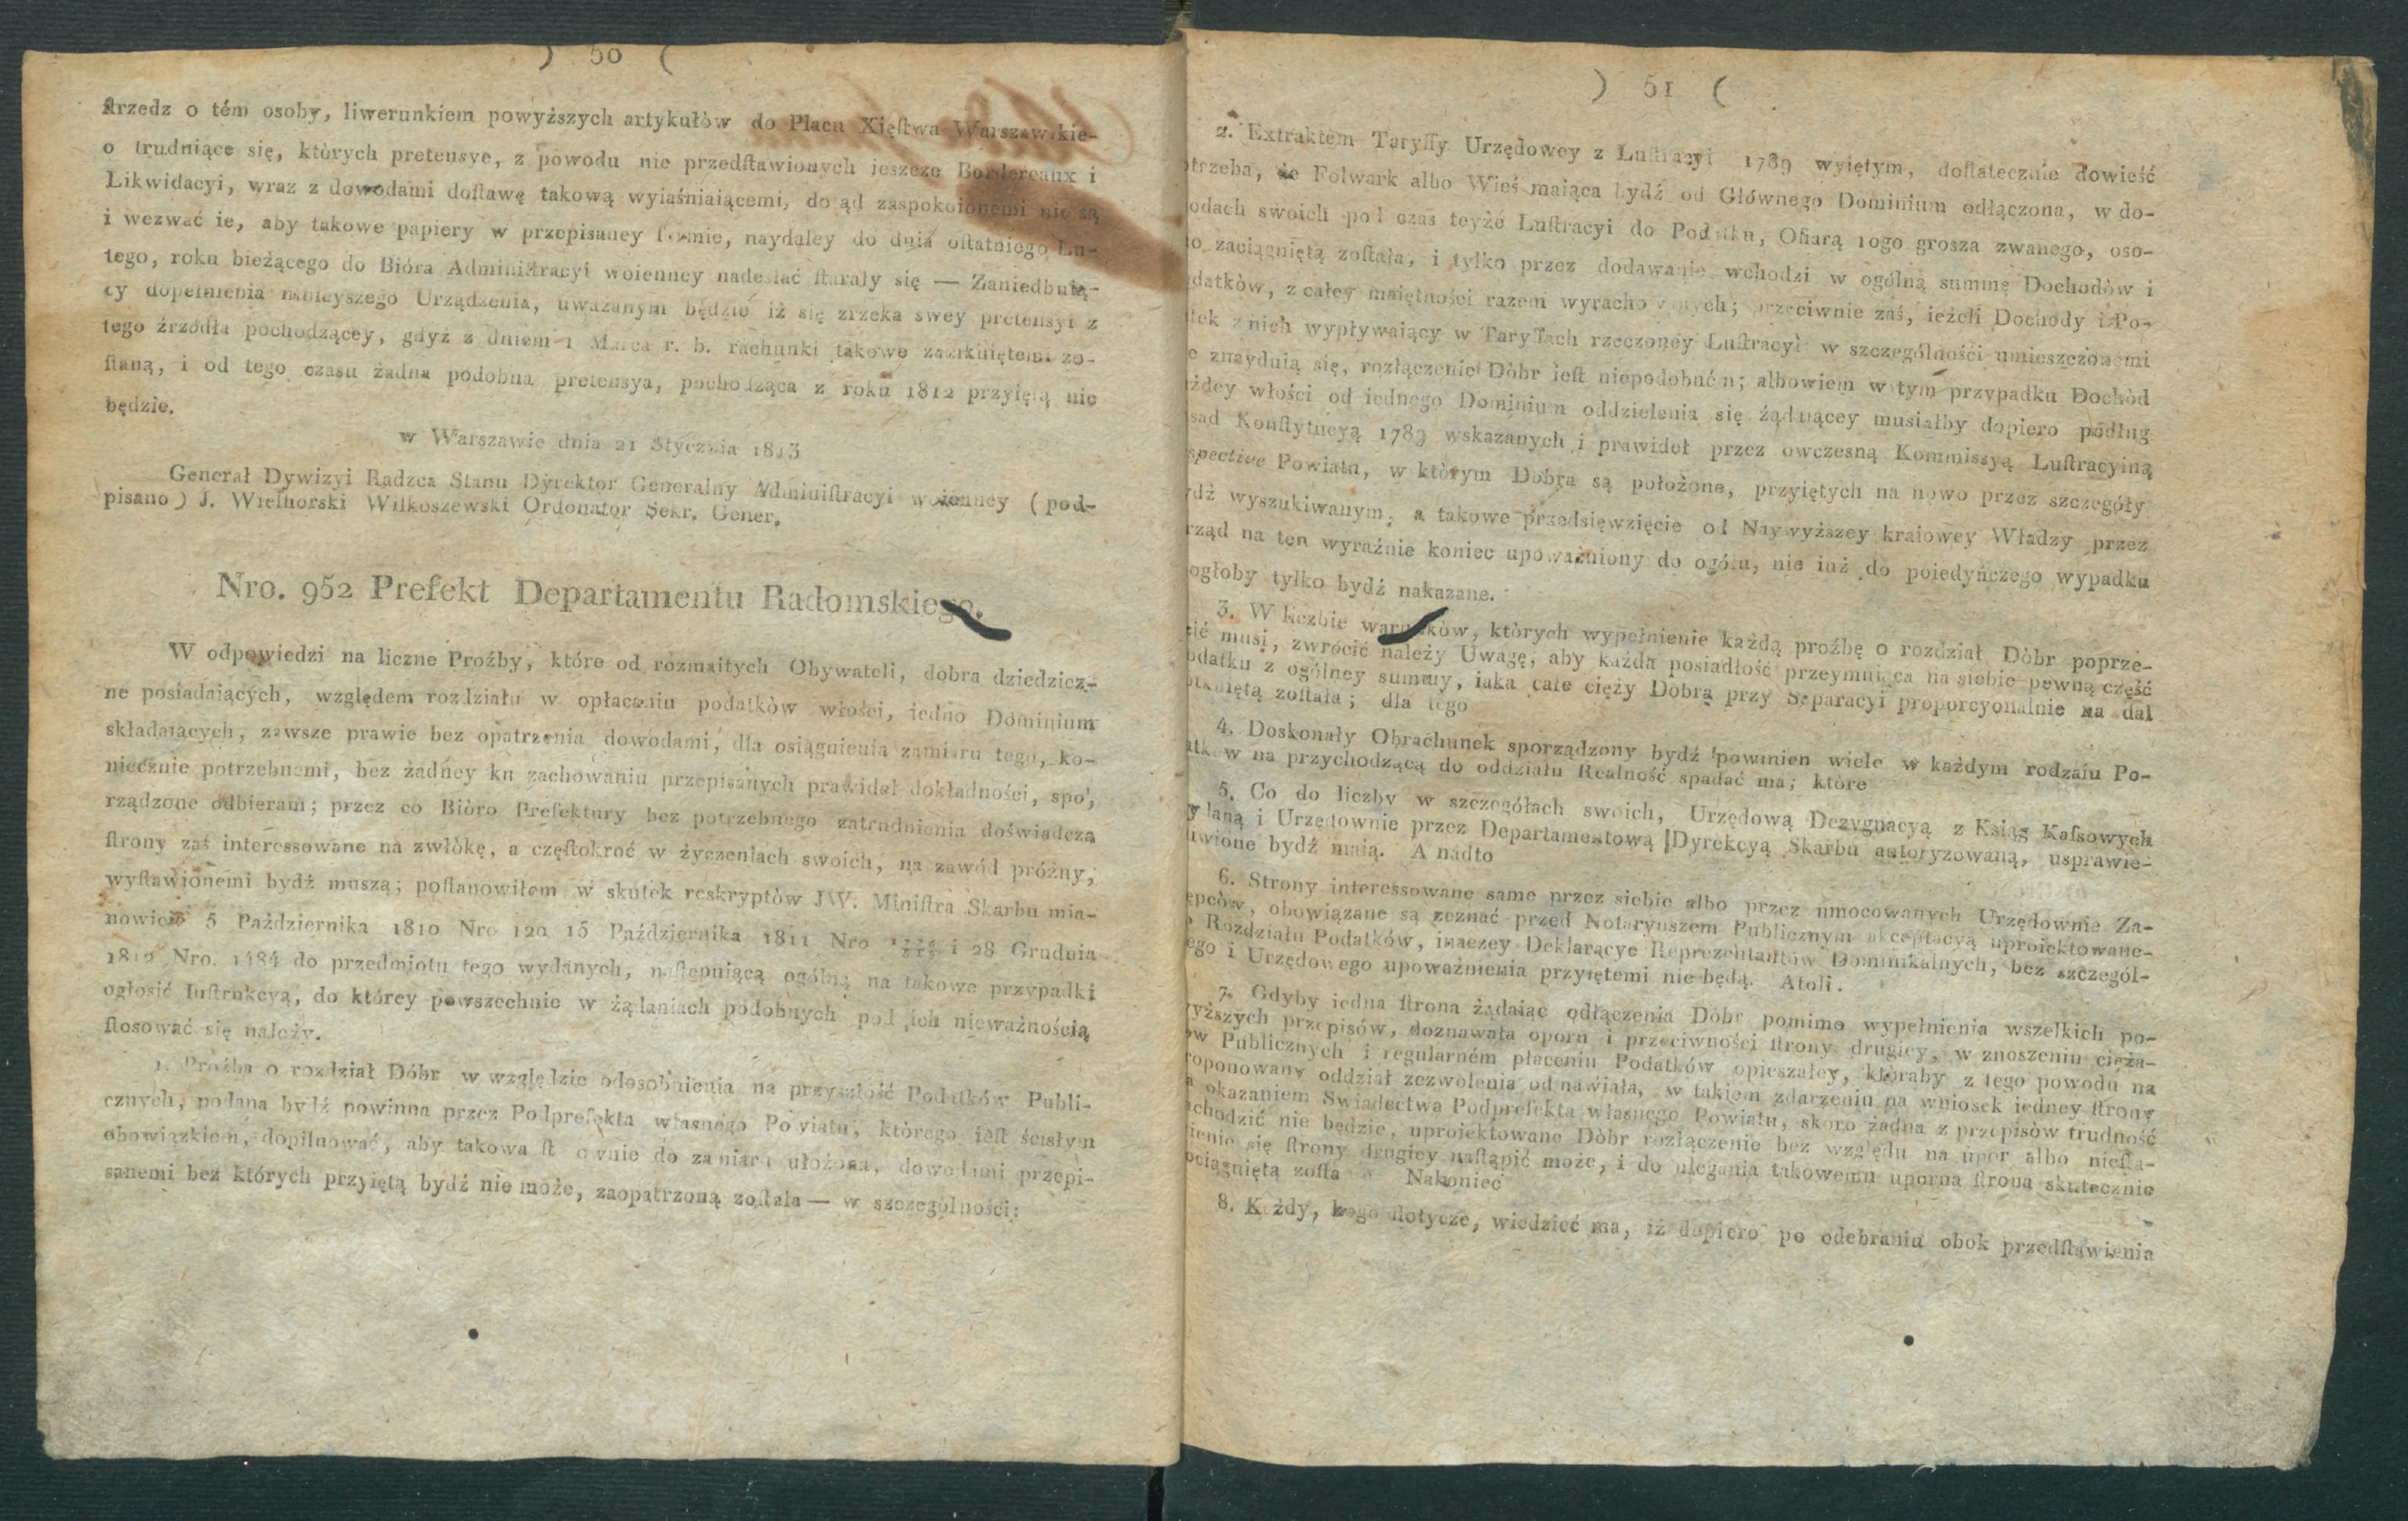 ) 50 (
strzedz o tém osoby, liwerunkiem powyższych artykułòw do Placu Xięstwa Warszawskie-
o trudniące się, których pretensye, z powodu nie przedstawionych ieszcze Bordereaux i
Likwidacyi, wraz z dowodami dostawę takową wyiaśniaiącemi, do ąd zaspokoionemi nie są
i wezwać ie, aby takowe papiery w przepisaney formie, naydaley do dnia ostatniego Lu-
tego, roku bieżącego do Bióra Administracyi woienney nadesłać starały się — Zaniedbuią-
cy dopełnienia ninieyszego Urządzenia, uważanym będzie iż się zrzeka swey pretensyi z
tego źrzódła pochodzącey, gdyż z dniem 1 Marca r. b. rachunki takowe zamkniętemi zo-
staną, i od tego czasu żadna podobna pretensya, pochodząca z roku 1812 przyiętą nie
będzie.
w Warszawie dnia 21 Stycznia 1813
Generał Dywizyi Radzca Stanu Dyrektor Generalny Administracyi woienney (pod-
pisano) J. Wielhorski Wilkoszewski Ordonator Sekr. Gener.
Nro. 952 Prefekt Departamentu Radomskiego.
W odpowiedzi na liczne Proźby, które od rozmaitych Obywateli, dobra dziedzicz-
ne posiadaiących, względem rozdziału w opłacaniu podatkòw włości, iedno Dominium
składaiących, zawsze prawie bez opatrzenia dowodami, dla osiągnienia zamiaru tego, ko-
niecznie potrzebnemi, bez żadney ku zachowaniu przepisanych prawideł dokładności, spo,
rządzone odbieram; przez co Bióro Prefektury bez potrzebnego zatrudnienia doświadcza
strony zaś interessowane na zwłòkę, a częstokroć w życzeniach swoich, na zawód próżny,
wystawionemi bydź muszą; postanowiłem w skutek reskryptòw JW. Ministra Skarbu mia-
nowicie 5 Października 1810 Nro 120 15 Października 1811 Nro i 28 Grudnia
1812 Nro. 1484 do przedmiotu tego wydanych, następuiącą ogólną na takowe przypadki
ogłosić Instrukcyą, do którey powszechnie w żądaniach podobnych pod ich nieważnością
stosować się należy.
1. Proźba o rozdział Dóbr w względzie odosobnienia na przyszłość Podatków Publi-
cznych, podana bydź powinna przez Podprefekta własnego Powiatu, którego iest ścisłym
obowiązkiem, dopilnować, aby takowa st ownie do zamiaru ułożona, dowodami przepi-
sanemi bez których przyiętą bydź nie może, zaopatrzoną została — w szczególności:
) 51 (
2. Extraktem Taryffy Urzędowey z Lustracyi 1789 wyiętym, dostatecznie dowieść
otrzeba, że Folwark albo Wieś maiąca bydź od Głównego Dominium odłączona, w do-
odach swoich pod czas teyże Lustracyi do Podatku, Ofiarą 10go grosza zwanego, oso-
o zaciągniętą została, i tylko przez dodawanie wchodzi w ogólną summę Dochodòw i
datkòw, z całey maiętności razem wyrachowanych; przeciwnie zaś, ieżeli Dochody i Po-
tek z nich wypływaiący w Taryffach rzeczoney Lustracyi w szczególności umieszczonemi
e znaydnią się, rozłączenie Dòbr iest niepodobném; albowiem w tym przypadku Dochòd
żdey włości od iednego Dominium oddzielenia się żądaiącey musiałby dopiero podług
sad Konstytucyą 1789 wskazanych i prawideł przez owczesną Kommissyą Lustracyiną
spective Powiatu, w którym Dobra są położone, przyiętych na nowo przez szczegóły
dź wyszukiwanym, a takowe przedsięwzięcie od Naywyższey kraiowey Władzy przez
rząd na ten wyraźnie koniec upoważniony do ogółu, nie iuż do poiedyńczego wypadku
ogłoby tylko bydź nakazane.
3. W liczbie warunkòw, których wypełnienie każdą proźbę o rozdział Dòbr poprze-
zić musi, zwrócić należy Uwagę, aby każda posiadłość przeymuiąca na siebie pewną część
odatku z ogólney summy, iaka całe cięży Dobra przy Separacyi proporcyonalnie na dal
otkniętą została; dla tego
4. Doskonały Obrachunek sporządzony bydź powinien wiele w każdym rodzaiu Po-
atkow na przychodzącą do oddziału Realność spadać ma; które
5. Co do liczby w szczegółach swoich, Urzędową Dezygnacyą z Ksiąg Kassowych
y laną i Urzędownie przez Departamentową Dyrekcyą Skarbu autoryzowaną, usprawie-
iwione bydź maią. A nadto
6. Strony interessowane same przez siebie albo przez umocowanych Urzędownie Za-
epców, obowiązane są zeznać przed Notaryuszem Publicznym akceptacyą uproiektowane-
o Rozdziału Podatków, inaczey Deklaracye Reprezentantów Dominikalnych, bez szczegól-
ego i Urzędowego upoważnienia przyiętemi nie będą. Atoli.
7. Gdyby iedna strona żądaiąc odłączenia Dòbr pomimo wypełnienia wszelkich po-
yższych przepisów, doznawała oporu i przeciwności strony drugiey, w znoszeniu cięża-
ow Publicznych i regularném płaceniu Podatków opieszałey, któraby z tego powodu na
roponowany oddział zezwolenia odmawiała, w takiem zdarzeniu na wniosek iedney strony
a okazaniem Swiadectwa Podprefekta własnego Powiatu, skoro żadna z przepisòw trudność
achodzić nie będzie, uproiektowane Dòbr rozłączenie bez względu na upor albo niesta-
ienie się strony drugiey nastąpić może, i do ulegania takowemu uporna strona skutecznie
ociągniętą zosta Nakoniec
8. Każdy, kogo dotycze, wiedzieć ma, iż dopiero po odebraniu obok przedstawienia